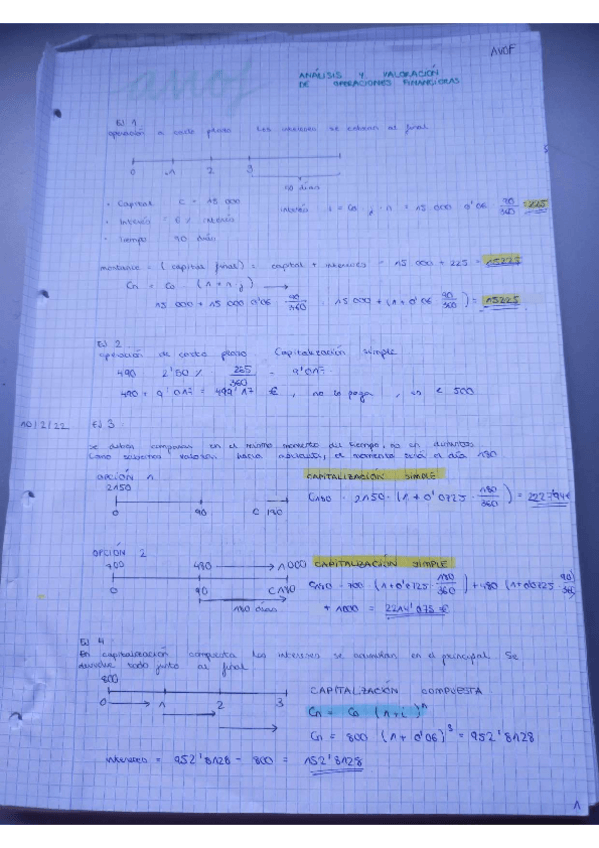 AVOF
ANÁLISIS Y VALORACIÓN
DE OPERACIONES FINANCIERAS
EJ 1
operación a corto plazo Los intereses se cobran al final
0 1 2 3
90 dias
• Capital C = 15 000
interés = C0 · i · n = 15 000 0'06 90/360 = 225
• Interés = 6% interés
• Tiempo 90 días
montante = (capital final) = capital + intereses = 15 000 + 225 = 15225
Cn = C0 (1 + n i)
15 000 + 15 000 0'06 90/360 = 15 000 + (1 + 0'06 90/360) = 15225
EJ 2
operación de corto plazo Capitalización simple
490 2'50 % 225/360 = 9'017
490 + 9'017 = 499'17 €, no lo paga, < 500
10/2/22 EJ 3
Se deben comparar en el mismo momento del tiempo, no en distintos
Como valores hacia adelante, el momento será el día 180
OPCIÓN 1 CAPITALIZACIÓN SIMPLE
2150
C180 = 2150 · (1 + 0'0725 · 180/360) = 2227'94 €
0 90 C 180
OPCIÓN 2
700 480 1000 CAPITALIZACIÓN SIMPLE
C180 = 700 · (1 + 0'0725 · 180/360) + 480 (1 + 0'0725 · 90/360)
0 90 C180
+ 1000 = 2214'075 €
180 días
EJ 4:
En capitalización compuesta los intereses se acumulan en el principal. Se
devuelve todo junto al final
800
CAPITALIZACIÓN COMPUESTA
0 1 2 3
Cn = C0 (1 + i)^n
Cn = 800 (1 + 0'06)^3 = 952'8128
intereses = 952'8128 - 800 = 152'8128
1